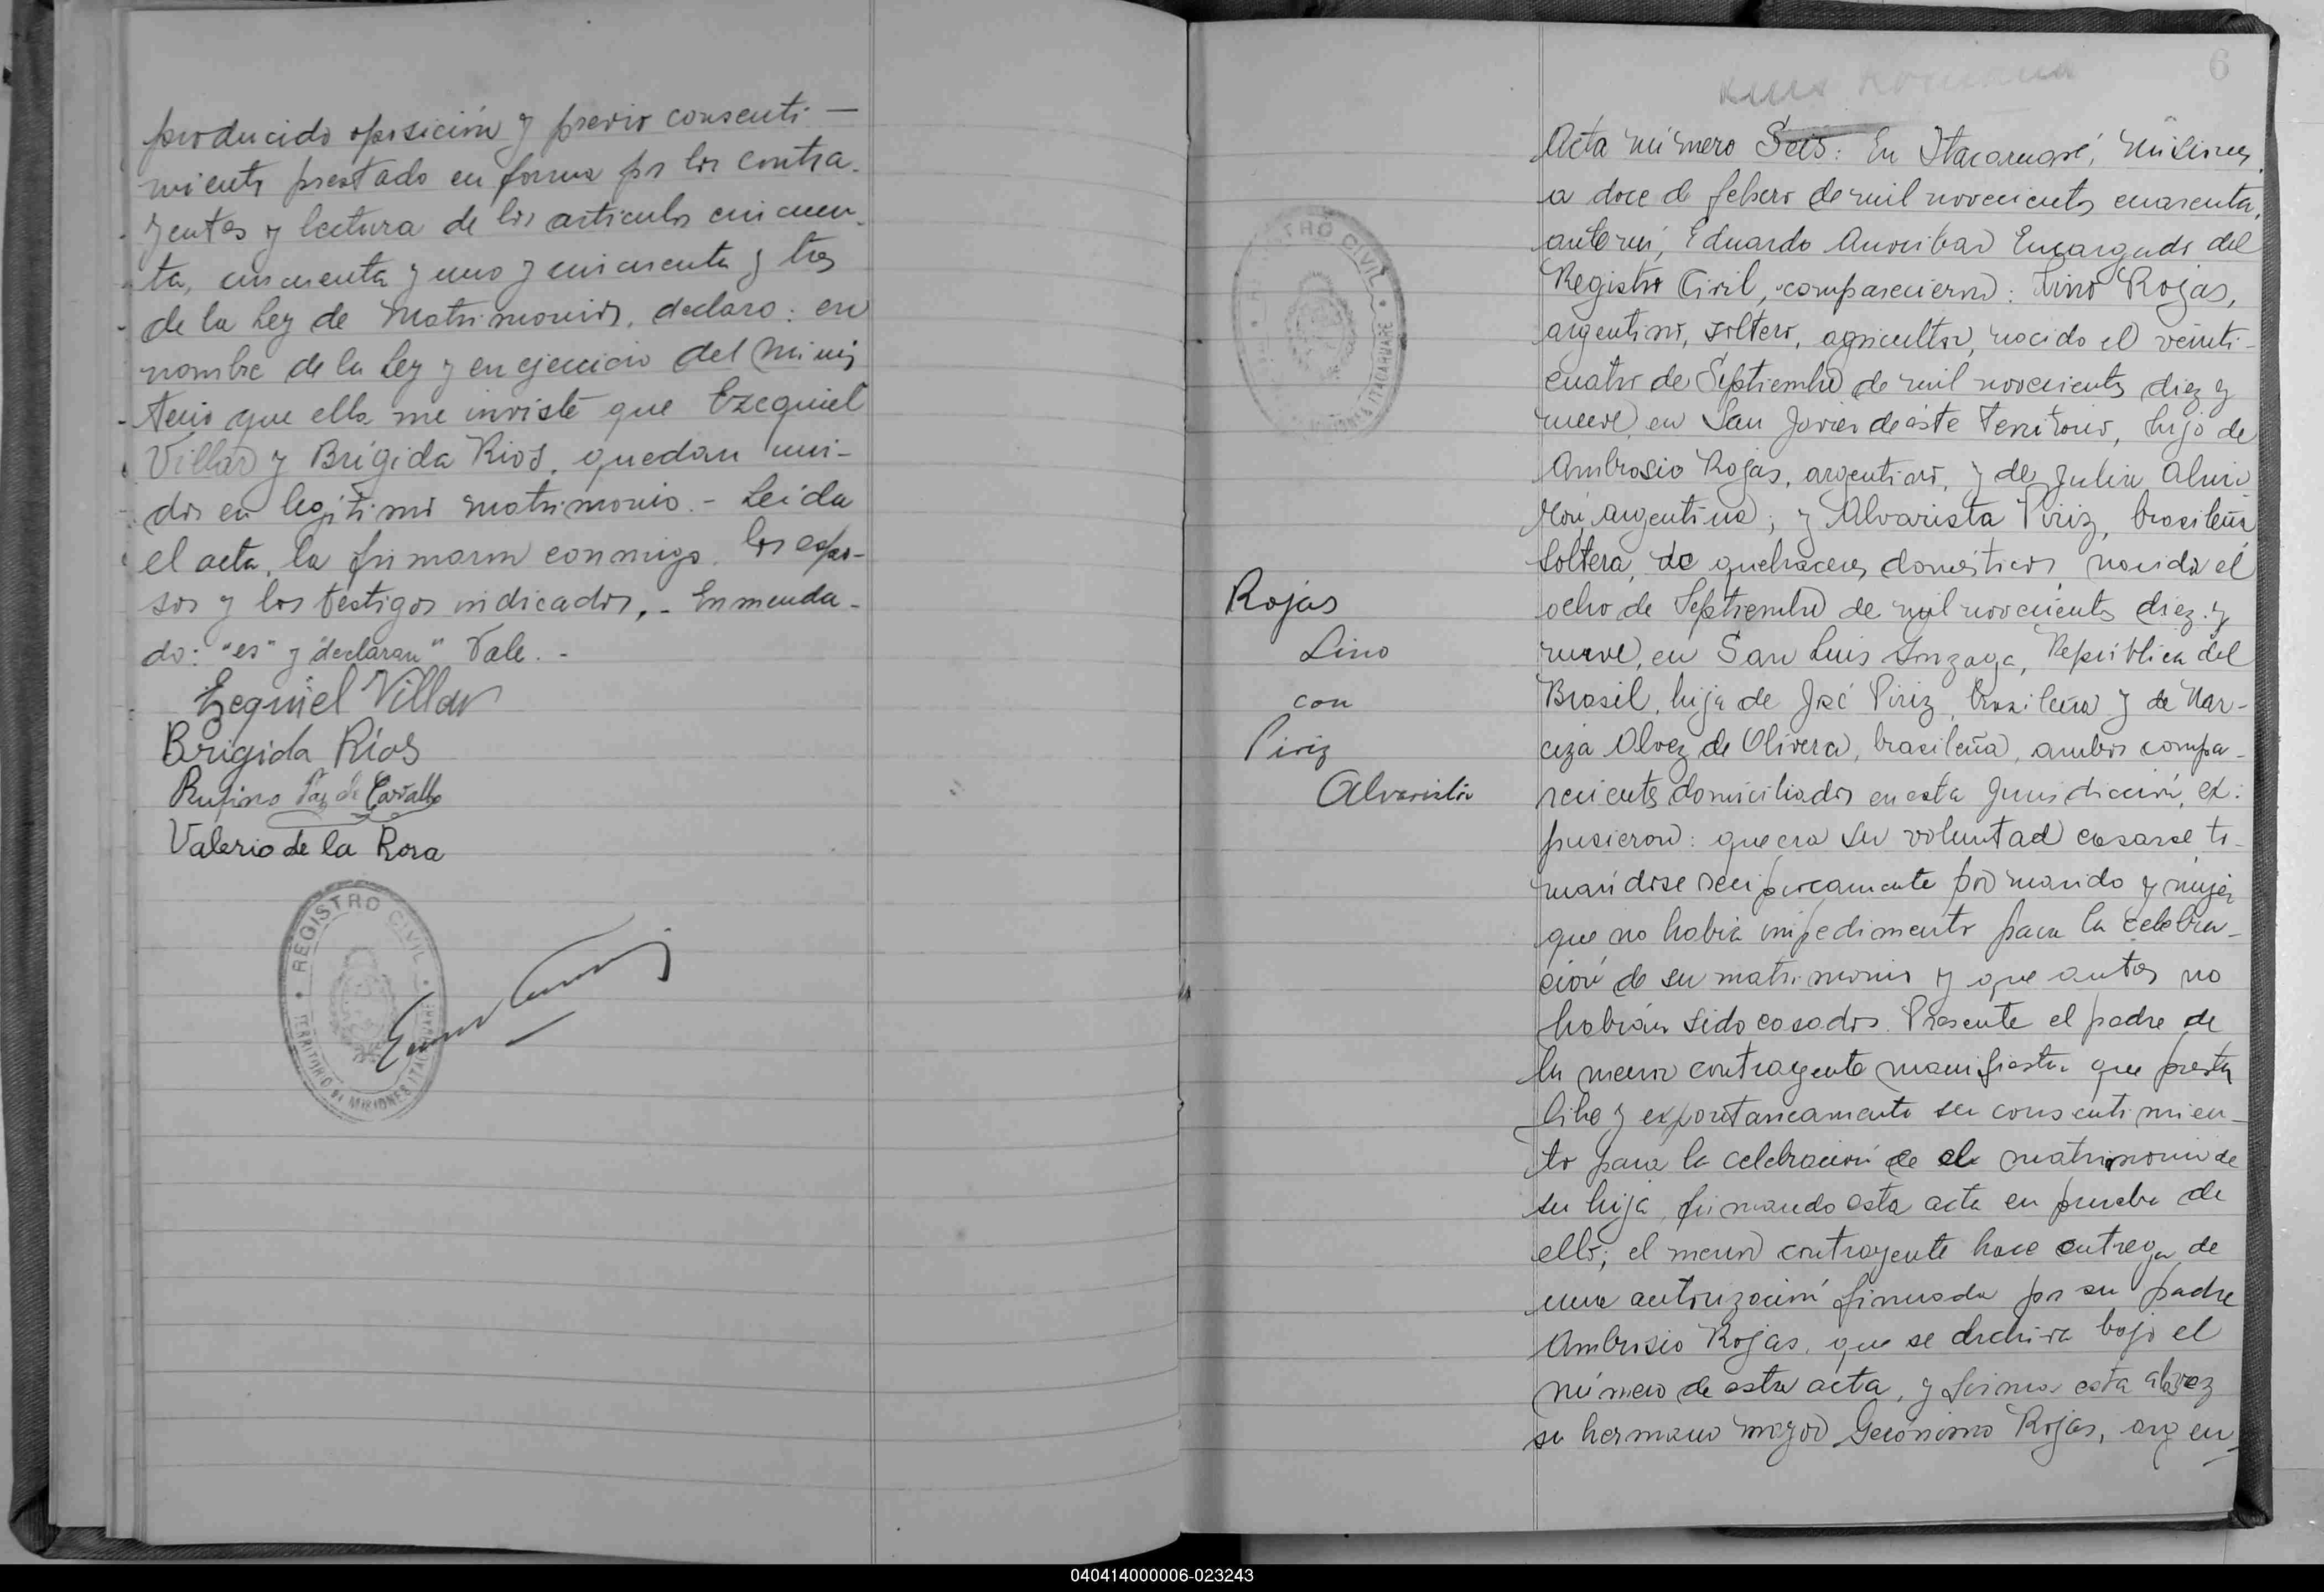 producido oposición y previo consenti —
miento prestado en forma por los contra-
yentes y lectura de los articulos cincuen-
ta, cincuenta y uno y cincuenta y tres
de la Ley de Matrimonios, declaro: en
nombre de la Ley y en ejercicio del minis
terio que ella me inviste que Ezequiel
Villar y Brígida Rios, quedan uni-
dos en legítimo matrimonio. - Leida
el acta, la firmaron conmigo. los espo-
sos y los testigos indicados, - Enmenda-
do: "es" y "declaran" Vale. -
Ezequiel Villar
Brigida Ríos
Rufino Paz de Carvallo
Valerio de la Rosa
REGISTRO CIVIL
TERRITORIO DE MISIONES ITACARUARE
6
Acta número Seis: En Itacaruaré, Misiones,
a doce de febrero de mil novecientos cuarenta,
ante mí, Eduardo Encargado del
Registro Civil, comparecieron: Lino Rojas,
argentino, soltero, agricultor, nacido el veinti-
cuatro de Septiembre de mil novecientos diez y
nueve, en San Javier de éste Territorio, hijo de
Ambrosio Rojas, argentino, y de Julia
argentina; y Alvarista Piriz, brasileña
soltera, de quehaceres domésticos, nacida el
ocho de Septiembre de mil novecientos diez y
nueve, en San Luis Gonzaga, República del
Brasil, hija de José Piriz, brasilero y de Nar-
ciza Alvez de Olivera, brasileña, ambos compa-
recientes domiciliados en esta Jurisdicción, ex-
pusieron: que era su voluntad casarse to-
mandose reciprocamente por marido y mujer,
que no habia impedimento para la celebra-
ción de su matrimonio y que antes no
habian sido casados. Presente el padre de
la menor contrayente manifiesta que presta
libre y expontaneamente su consentimien-
to para la celebración de el matrimonio de
su hija, firmando esta acta en prueba de
ello; el menor contrayente hace entrega de
una autorización firmada por su padre
Ambrosio Rojas, que se archiva bajo el
número de esta acta, y firma esta a la vez
su hermano mayor Gerónimo Rojas, argen-
Rojas
Lino
con
Piriz
Alvarista
REGISTRO CIVIL
MISIONES ITACARUARE
040414000006-023243